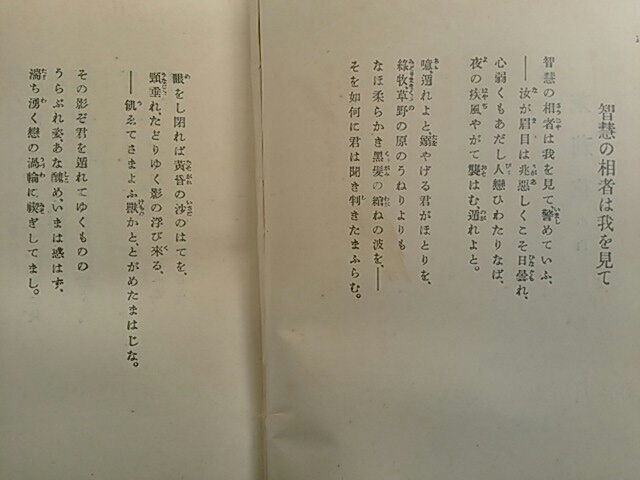 智慧の相者は我を見て
智慧の相者は我を見て警めていふ、
——汝が眉目は兆悪しくこそ日曇れ、
心弱くもあだし人戀ひわたりなば、
夜の疾風やがて襲はむ、遁れよと。
噫遁れよと嫋やげる君がほとりを、
緑牧、草野の原のうねりよりも
なほ柔らかき黑髮の綰ねの波を、——
そを如何に君は聞き判きたまふらむ。
眼をし閉れば黃昏の沙のはてを、
頸垂れ、たどりゆく影の浮び來る、
——飢ゑてさまよふ獸かと、とがめたまはじな。
その影ぞ君を遁れてゆくものの
うらぶれ姿、あな醜め、いまは惑はず、
湍ち湧く戀の渦輪に禊ぎしてまし。